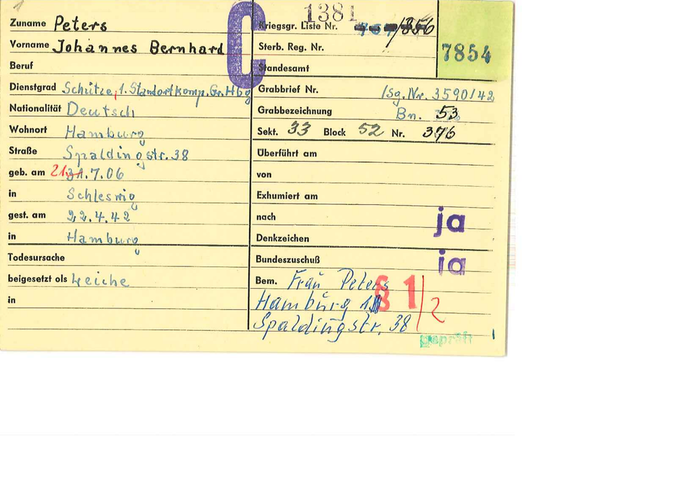 Zuname Peters
Vorname Johannes Bernhard
Beruf
Dienstgrad Schütze, 1. Standortkomp. Gr. Hbg
Nationalität Deutsch
Wohnort Hamburg
Straße Spaldingstr. 38
geb. am 21. .7.06
in Schleswig
gest. am 22.4.42
in Hamburg
Todesursache
beigesetzt als Leiche
in
C
1381
Kriegsgr. Liste Nr. 1356
7854
Sterb. Reg. Nr.
Standesamt
Grabbrief Nr. /Sg. Nr. 3590/42
Grabbezeichnung Bn. 53
Sekt. 33 Block 52 Nr. 376
Überführt am
von
Exhumiert am
nach ja
Denkzeichen
Bundeszuschuß ja
Bem. Frau Peters
Hamburg 1
§ 1/2
Spaldingstr. 38
geprüft